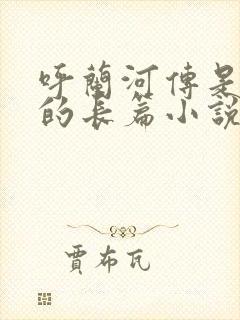 呼蘭河傳是
的長篇小說
賈布瓦